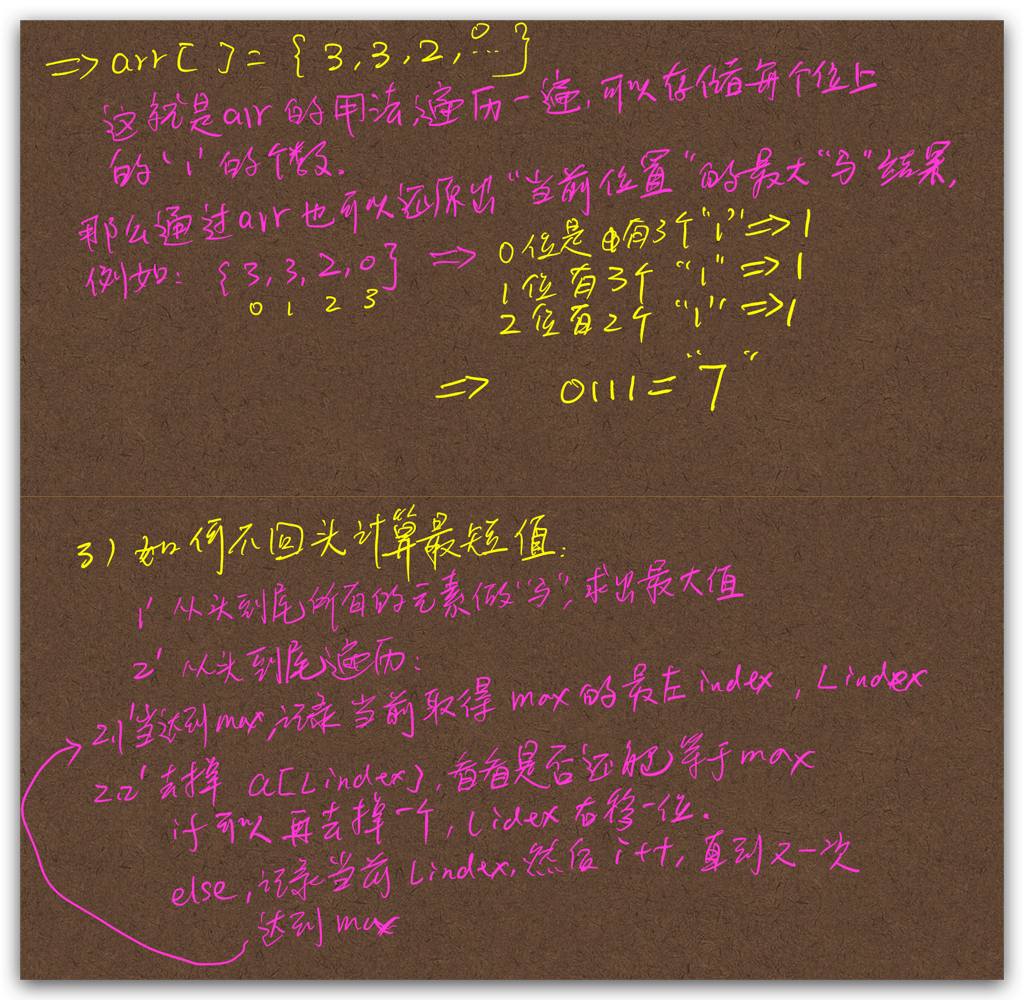 => arr[ ] = { 3, 3, 2, 0... }
这就是arr的用法,遍历一遍,可以存储每个位上
的'1'的个数.
那么通过arr也可以还原出"当前位置"的最大"与"结果,
例如: {3, 3, 2, 0} => 0位是有3个"1" => 1
0 1 2 3
1位有3个 "1" => 1
2位有2个 "1" => 1
=> 0111 = "7"
3) 如何不回头计算最短值:
1' 从头到尾所有的元素做"与",求出最大值
2' 从头到尾遍历:
2.1' 当达到max,记录当前取得max的最左index, Lindex
2.2' 去掉 a[Lindex], 看看是否还能等于max
if可以再去掉一个, Lidex右移一位.
else, 记录当前Lindex,然后i++, 直到又一次
达到max